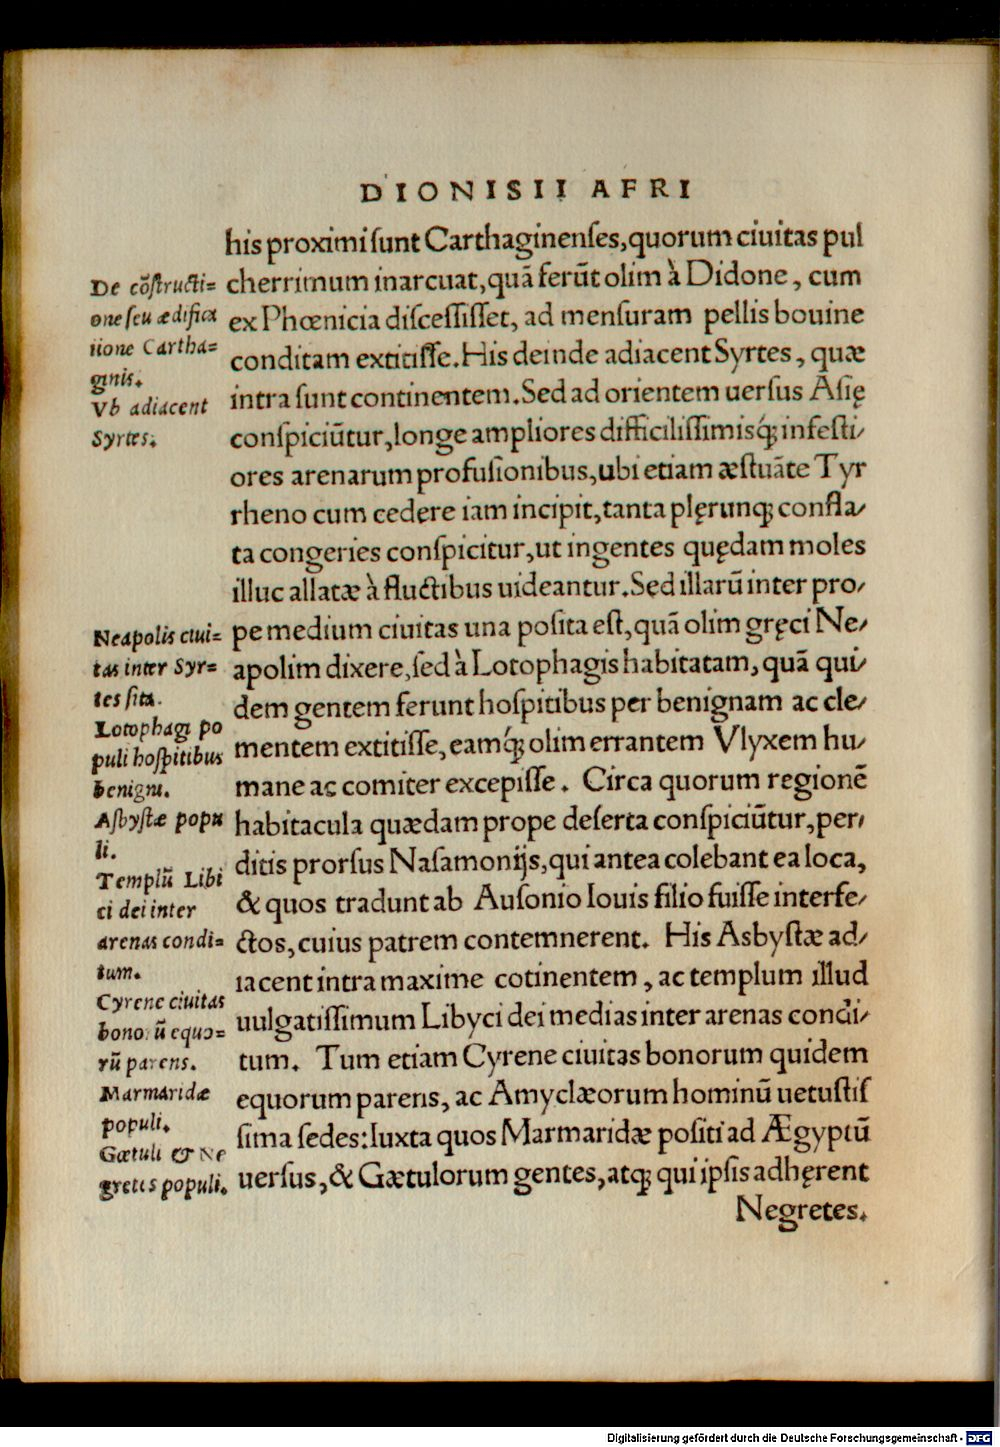 DIONISII AFRI
his proximi sunt Carthaginenses, quorum ciuitas pul
cherrimum inarcuat, quā ferūt olim à Didone, cum
ex Phœnicia discessisset, ad mensuram pellis bouine
conditam extitisse. His deinde adiacent Syrtes, quæ
intra sunt continentem. Sed ad orientem uersus Asię
conspiciūtur, longe ampliores difficilissimisq́; infesti/
ores arenarum profusionibus, ubi etiam æstuāte Tyr
rheno cum cedere iam incipit, tanta plęrunq; confla/
ta congeries conspicitur, ut ingentes quędam moles
illuc allatæ à fluctibus uideantur. Sed illarū inter pro/
pe medium ciuitas una posita est, quā olim gręci Ne/
apolim dixere, sed à Lotophagis habitatam, quā qui/
dem gentem ferunt hospitibus per benignam ac cle/
mentem extitisse, eamq́; olim errantem Vlyxem hu/
mane ac comiter excepisse. Circa quorum regionē
habitacula quædam prope deserta conspiciūtur, per/
ditis prorsus Nasamonijs, qui antea colebant ea loca,
& quos tradunt ab Ausonio Iouis filio fuisse interfe/
ctos, cuius patrem contemnerent. His Asbystæ ad/
iacent intra maxime cotinentem, ac templum illud
uulgatissimum Libyci dei medias inter arenas condi/
tum. Tum etiam Cyrene ciuitas bonorum quidem
equorum parens, ac Amyclæorum hominū uetustis
sima sedes: Iuxta quos Marmaridæ positi ad Ægyptū
uersus, & Gætulorum gentes, atq; qui ipsis adhęrent
Negretes.
De cōstructi=
one seu ædifica
tione Cartha=
ginis.
Vb adiacent
Syrtes.
Neapolis ciui=
tas inter Syr=
tes sita.
Lotophagi po
puli hospitibus
benigni.
Asbystæ popu
li.
Templū Libi
ci dei inter
arenas condi=
tum.
Cyrene ciuitas
bonorū equo=
rū parens.
Marmaridæ
populi.
Gætuli & Ne
gretes populi.
Digitalisierung gefördert durch die Deutsche Forschungsgemeinschaft - DFG